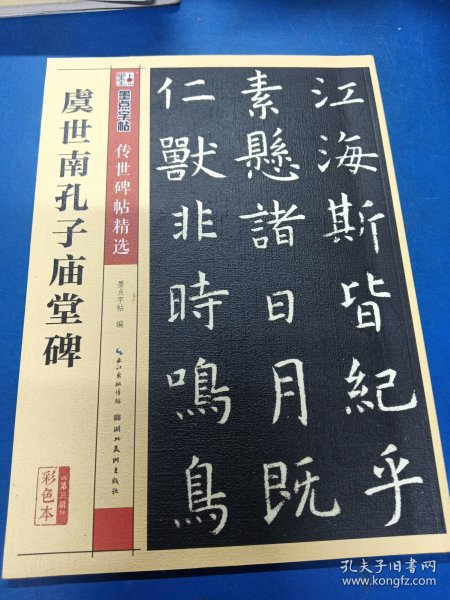 虞世南孔子庙堂碑
墨点字帖
传世碑帖精选
墨点字帖 编
长江出版传媒
湖北美术出版社
彩色本
第三辑
江海斯皆紀乎
素懸諸日月既
仁獸非時鳴鳥
孔夫子旧书网
www.kongfz.com